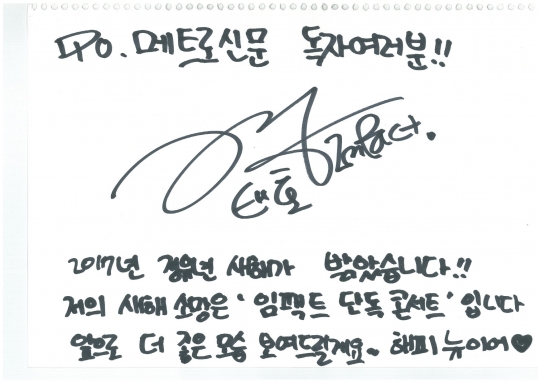 To. 메트로신문 독자여러분!!
Impact.
태호
2017년 정유년 새해가 밝았습니다!!
저의 새해 소망은 '임팩트 단독 콘서트' 입니다
앞으로 더 좋은 모습 보여드릴게요~ 해피 뉴이어♡